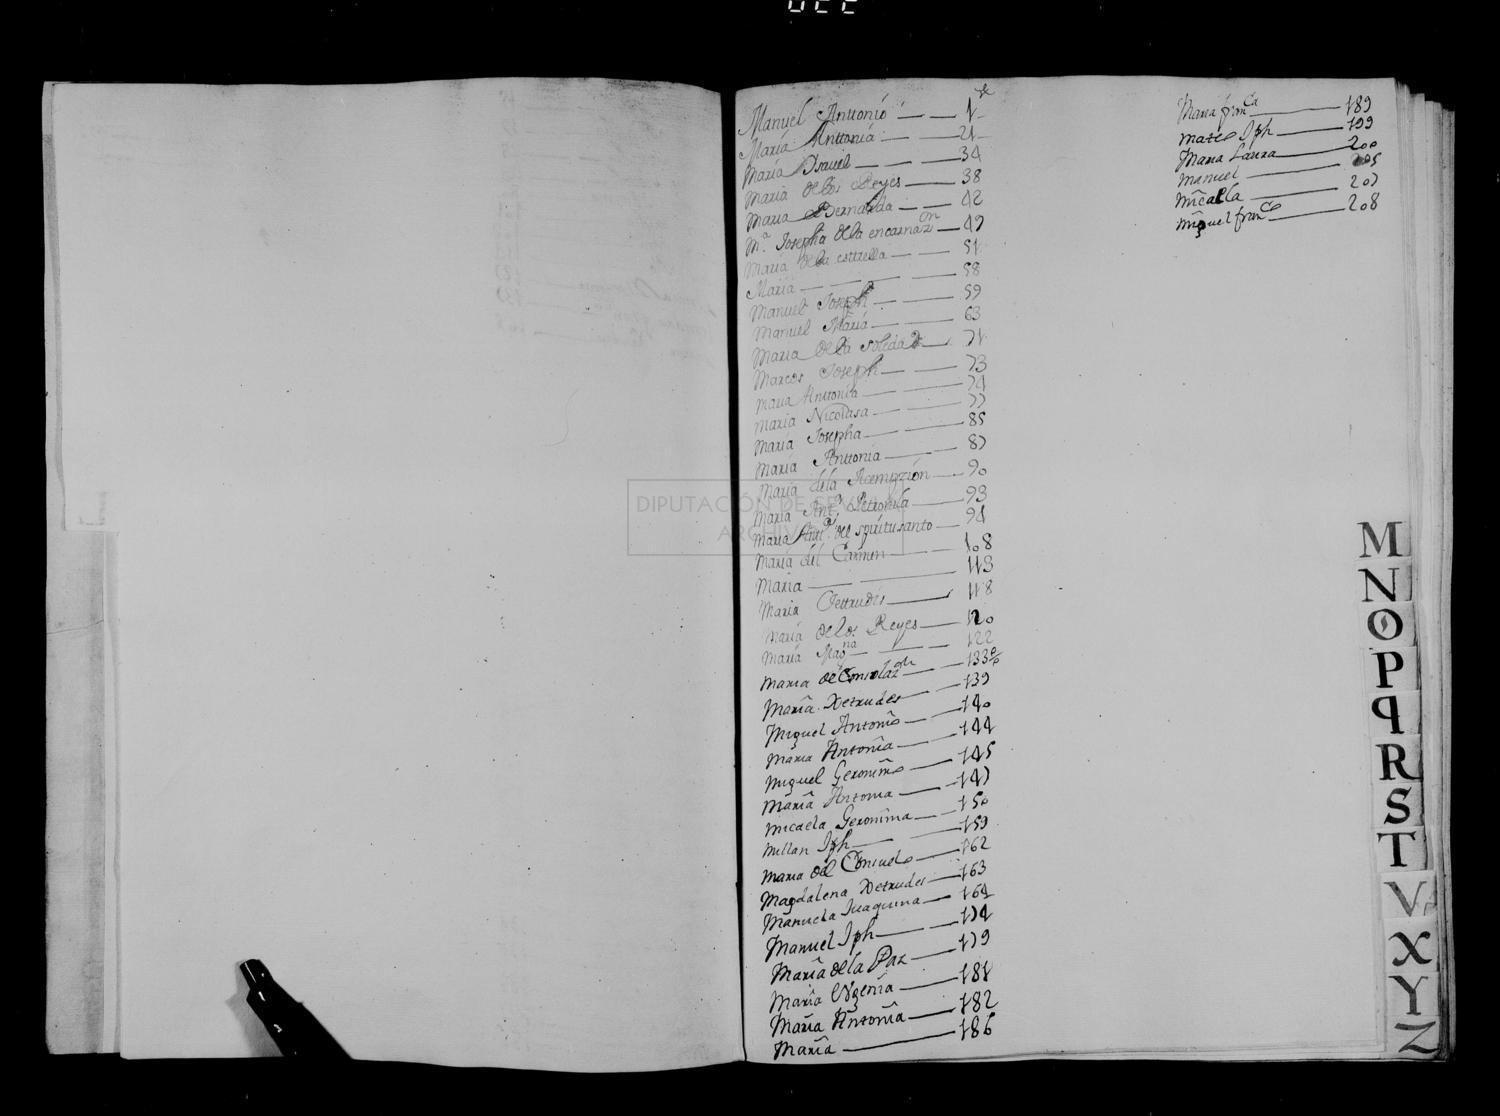 Manuel Anttonio — — 1
María Anttonia — — 21
María Ysauel — — — 34
María de los Reyes — 38
María Bernarda — — 42
Mª. Josepha de la encarnazon — 49
María de la esttrella — — 51
María — — — — — 58
Manuel Joseph — — — 59
Manuel María — — — 63
María de la Soledad — 71
Marcos Joseph — — 73
María Anttonia — — 74
María Nicolasa — — 77
María Josepha — — 85
María Anttonia — — 87
María de la — 90
María Antª. Petronila — 93
María Antª. del spiritusanto — 94
María del Carmen — — 108
María — — 113
María Gettrudis — 118
María de los Reyes — 120
María Magna — — — 122
María de Consolazon — 133
María Xetrudes — — 139
Miguel Antonio — — 140
María Antonia — — 144
Miguel Geronimo — — 145
María Antonia — — 147
Micaela Geronima — 150
Millan Jph — — 159
María del Consuelo — 162
Magdalena Xetrudes — 163
Manuela Juaquina — 164
Manuel Jph — — 174
María de la Paz — 179
María Eugenia — 181
María Antonia — 182
María — 186
María franca — 189
Mateo Jph — 199
María Laura — 200
Manuel — 205
Micaela — 207
Miguel franco — 208
DIPUTACIÓN DE SEVILLA
ARCHIVO
M
N
O
P
q
R
S
T
V
X
Y
Z